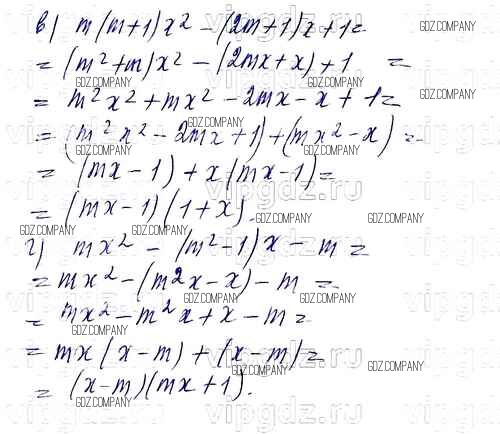 в) m(m+1)x² - (2m+1)x + 1 =
= (m²+m)x² - (2mx+x) + 1 =
= m²x² + mx² - 2mx - x + 1 =
= (m²x² - 2mx + 1) + (mx² - x) =
= (mx - 1) + x(mx - 1) =
= (mx - 1)(1 + x)
г) mx² - (m² - 1)x - m =
= mx² - (m²x - x) - m =
= mx² - m²x + x - m =
= mx(x - m) + (x - m) =
= (x - m)(mx + 1).
GDZ.COMPANY
vipgdz.ru